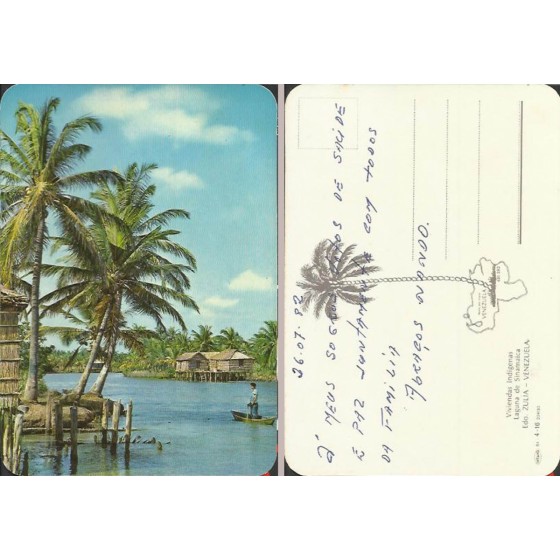 26.07.82
Á MEUS SOGROS VOTOS DE SAÚDE
E PAZ JUNTAMENTE COM TODOS
DA FAMÍLIA
ABRAÇOS
VENEZUELA
Viviendas Indígenas
Laguna de Sinamaica
Edo. ZULIA - VENEZUELA
4-16